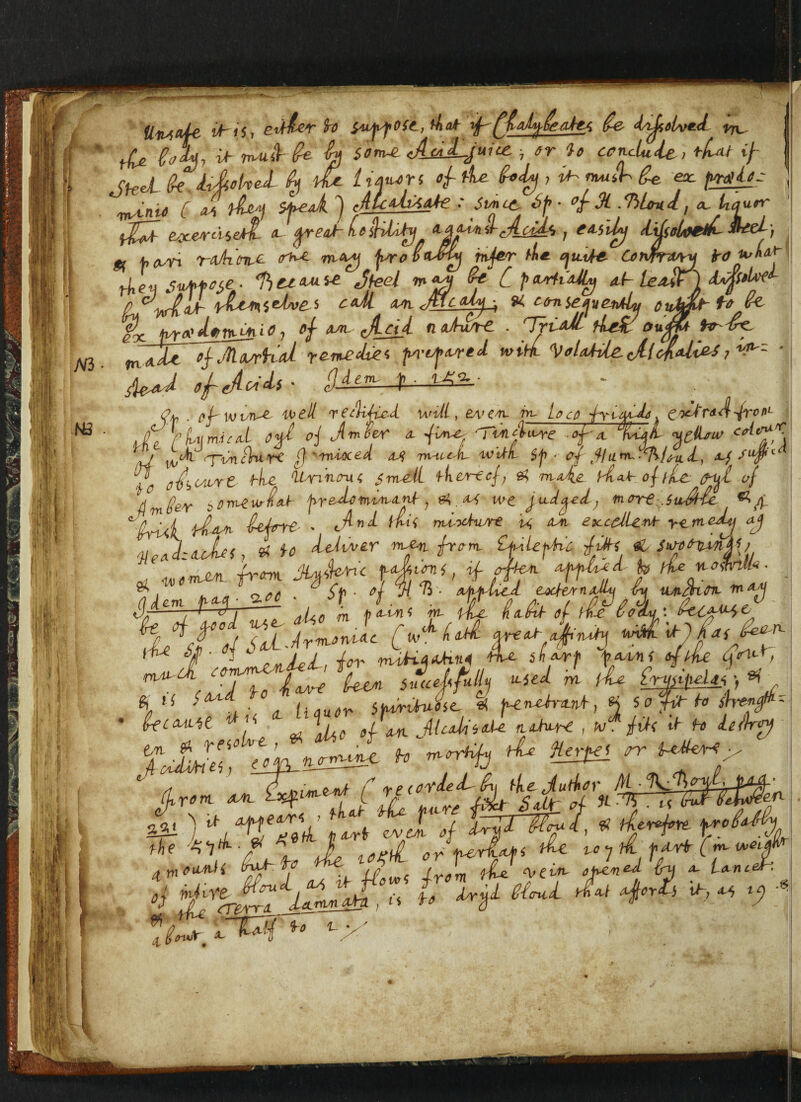 Unsafe it is, either to suppose, that if Chalybeates be dissolved in
the Body, it must be by some Acid Juice; or to conclude, that if
Steel be dissolved by the liquors of the body, it must be ex prædo=
minio (as they speak) Alcalisate: Since Sp. of H. Bloud, a liquor
that exerciseth a great hostility against Acids, easily dissolveth Steel;
& pari ratione one may probably infer the quite Contrary to what
they suppose. Because Steel may be (partially at least) dissolved
by what themselves call an Alcaly; & consequently ought to be
Ex prædominio, of an Acid nature. Triall then ought to be
NB. made of Martial remedies prepared with Volatile Alchalies, in=
stead of Acids. Idem p. 192.
NB. Sp. of wine well rectified will, even in loco frigido, extract from
the Chymical oyl of Amber a fine Tincture of a high yellow colour
Of wch Tincture J mixed as much with Sp. of Hum. Bloud, as sufficd
to obscure the Urinous smell thereof, & make that of the oyl of
Amber somewhat predominant, & as we judged, more subtle &
brisk than before. And this mixture is an excellent remedy agt
Head=aches, & to deliver men from Epileptic fitts & Swoonings,
& women from Hysteric passions, if often applied to the nostrills.
Idem pag. 200. Sp. of H B. applied externally by unction may
be of good use also in pains in the habit of the body: because
the Sp. of Sal Armoniac (wch hath great affinity with it) has been
much commended, for mitigating the sharp pains of the Gout,
& is said to have been successfully used in the Erysipelas; &
because it is a liquor spirituose & penetrant, & so fit to strength=
en & resolve, & also of an Alcalisate nature, wch fits it to destroy
Acidities, eoq, nomine to mortify the Herpes or tetters.
From an Expiment (recorded by the Author M. R. Boyl, pag.
221) it appears, that the pure fixt Salt of H. B. is but between
the 57th. & 58th part even of dryd bloud, & therefore probably
amounts but to the 106th or perhaps the 107th part (in weight
of intire bloud as it flows from the vein opened by a Lancet:
& the Terra damnata, is to dryd bloud that affords it, as 19 &
about a half to 1.